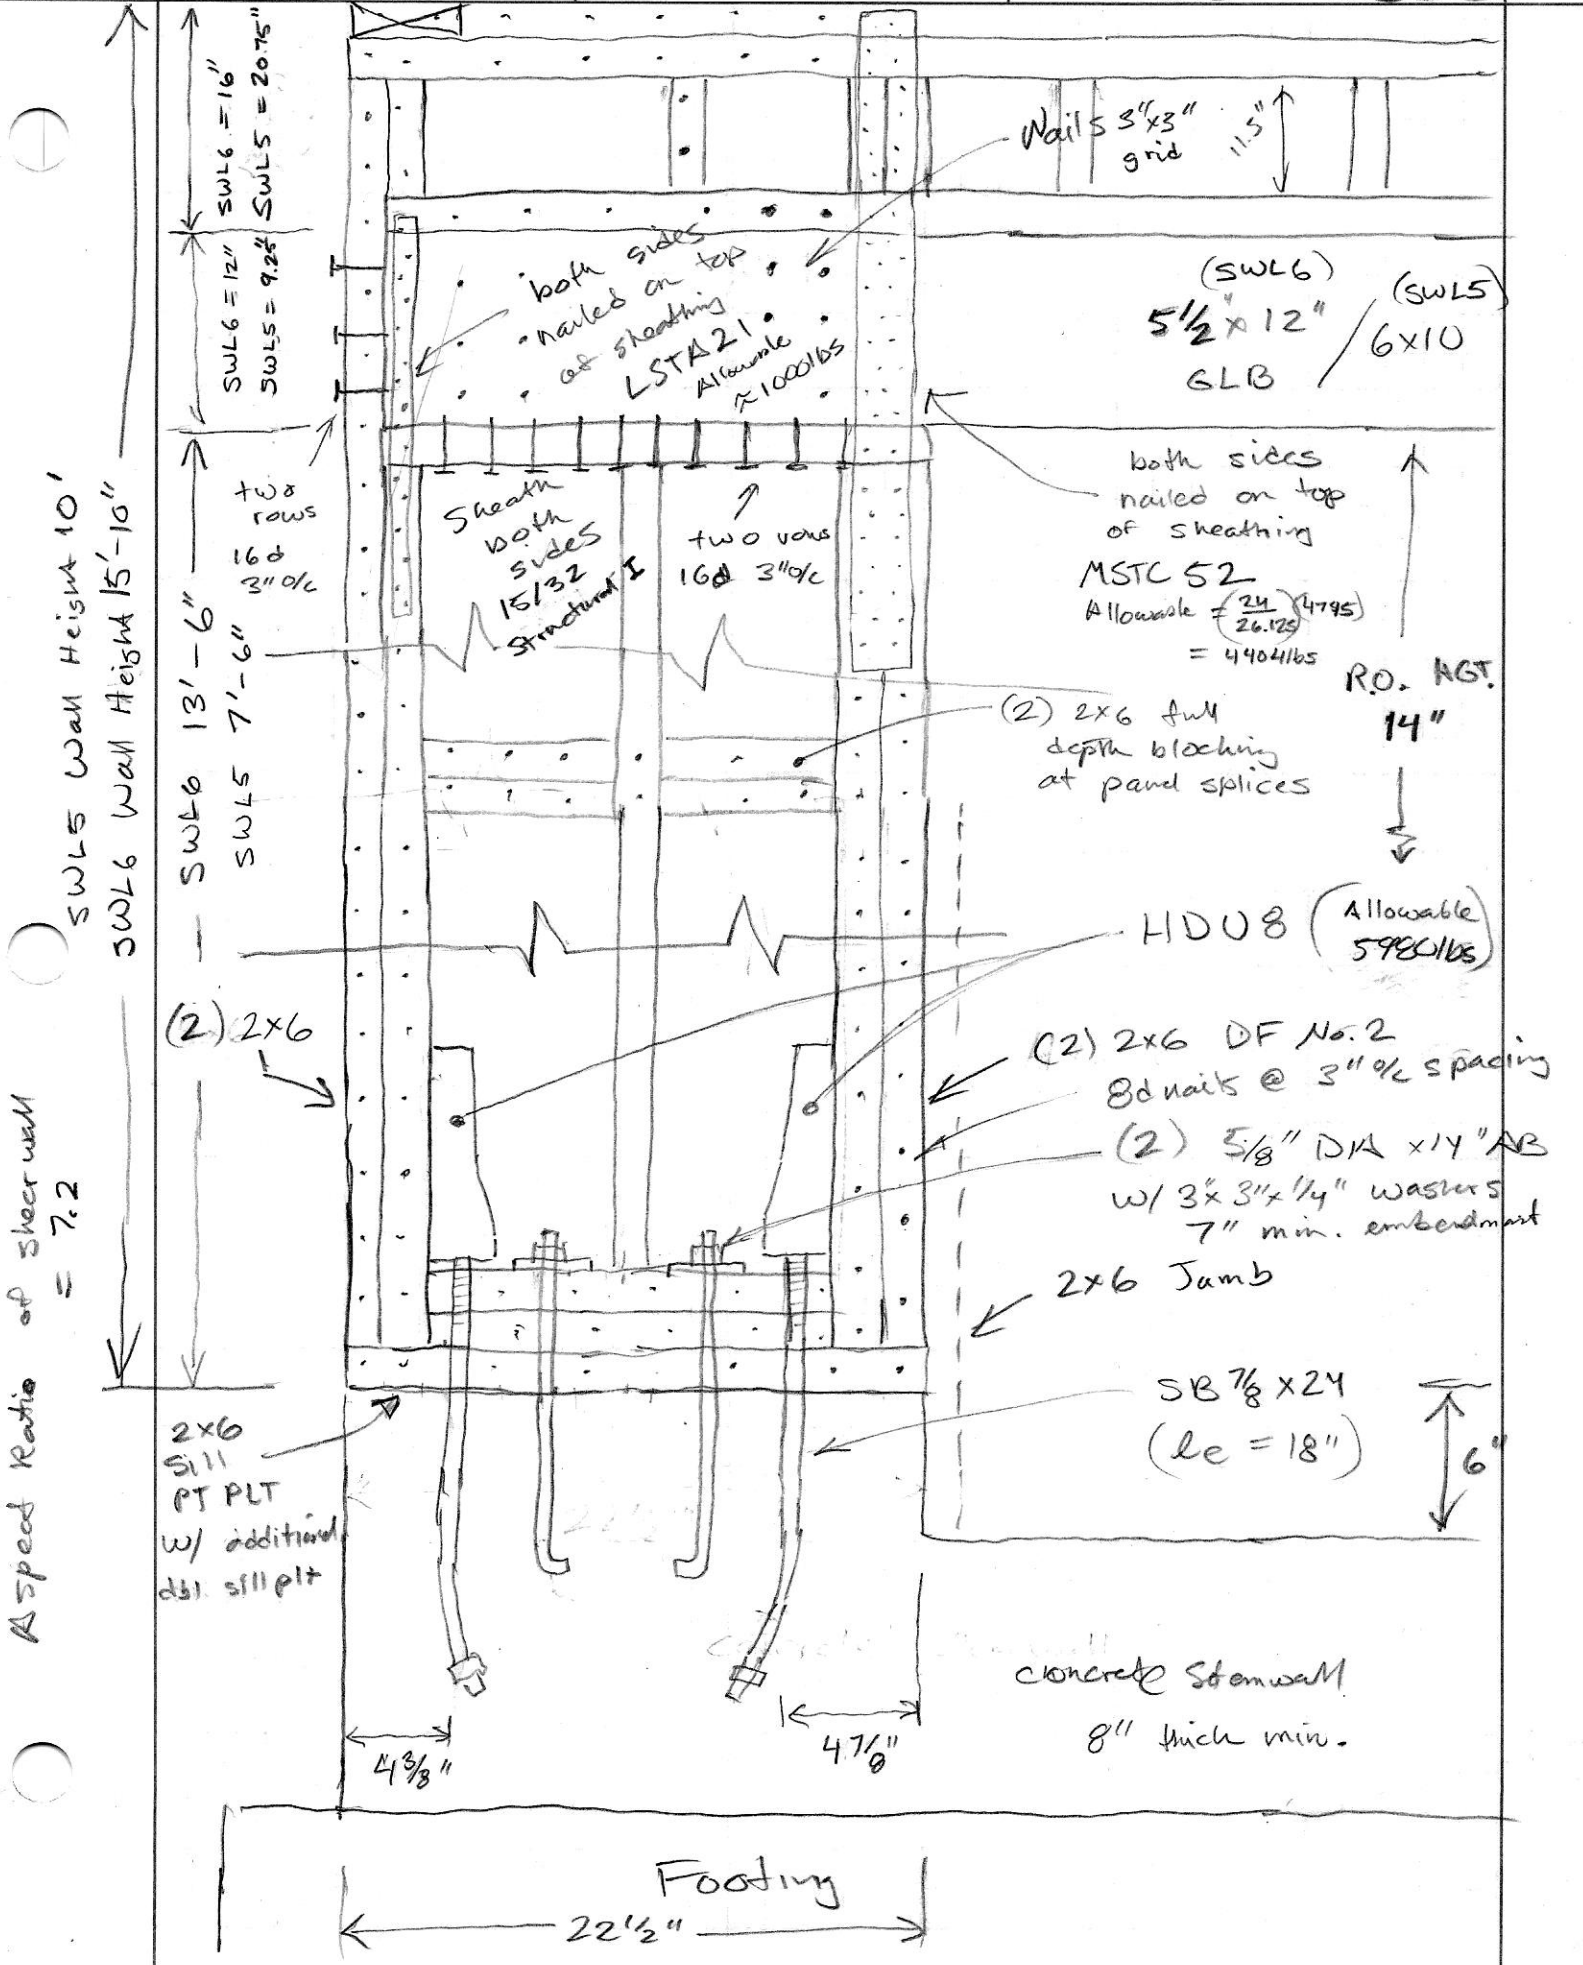 SWL5 Wall Height 10'
SWL6 Wall Height 15'-10"
Aspect Ratio of shear wall
= 7.2
SWL6 = 16"
SWL5 = 20.75"
SWL6 = 12"
SWL5 = 9.25"
SWL6 13'-6"
SWL5 7'-6"
Nails 3"x3"
grid
11.5"
both sides
nailed on top
of sheathing
LSTA21
Allowable
≈1000lbs
(SWL6)
5 1/2" x 12"
GLB
/
(SWL5)
6x10
two
rows
16d
3" o/c
Sheath
both
sides
15/32
Structural I
two rows
16d 3" o/c
both sides
nailed on top
of sheathing
MSTC 52
Allowable = (24/26.125)(4795)
= 4404lbs
R.O. HGT.
14"
(2) 2x6 full
depth blocking
at panel splices
HDU8 (Allowable
5980lbs)
(2) 2x6
(2) 2x6 DF No. 2
8d nails @ 3" o/c spacing
(2) 5/8" DIA x14" AB
w/ 3"x 3"x 1/4" washers
7" min. embendmant
2x6 Jamb
SB 7/8 x 24
(le = 18")
6"
2x6
Sill
PT PLT
w/ additional
dbl. sill plt
concrete Stemwall
8" thick min.
4 3/8"
4 7/8"
Footing
22 1/2"